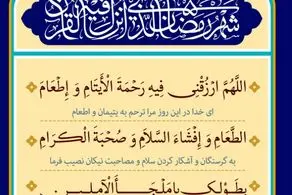 شهر رمضان الذی انزل فیه القرآن
اللَّهُمَّ ارْزُقْنِي فِيهِ رَحْمَةَ الْأَيْتَامِ وَ إِطْعَامَ
ای خدا در این روز مرا ترحم به یتیمان و اطعام
الطَّعَامِ وَ إِفْشَاءَ السَّلَامِ وَ صُحْبَةَ الْكِرَامِ
به گرسنگان و آشکار کردن سلام و مصاحبت نیکان نصیب فرما
بِطَوْلِكَ يَا مَلْجَأَ الْآمِلِينَ.